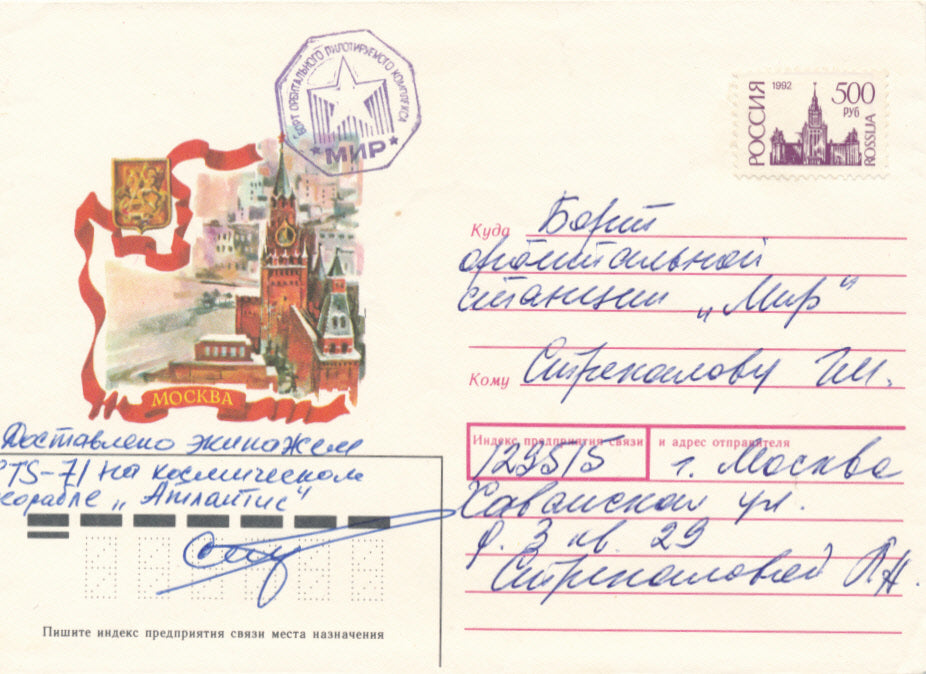 БОРТ ОРБИТАЛЬНОГО ПИЛОТИРУЕМОГО КОМПЛЕКСА
МИР
РОССИЯ
1992
500
РУБ
ROSSIJA
МОСКВА
Куда Борт
орбитальной
станции „Мир"
Кому Стрекалову Г.М.
Индекс предприятия связи и адрес отправителя
129515 г. Москва
ул.
д. 3 кв 29
Стрекаловой Л.Н.
Доставлено экипажем
STS-71 на космическом
корабле „Атлантис"
Пишите индекс предприятия связи места назначения